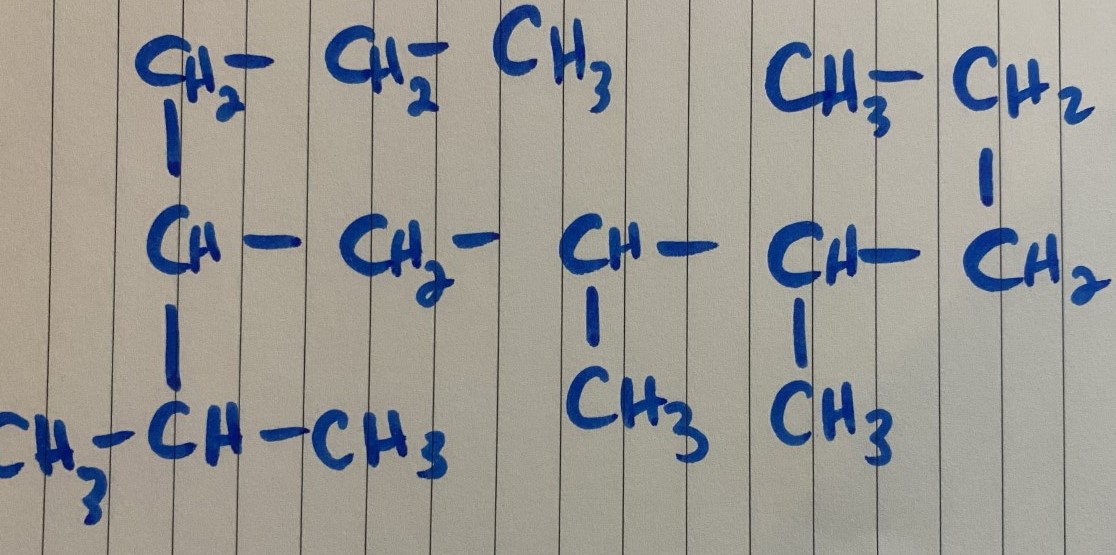 CH₂- CH₂- CH₃ CH₃- CH₂
| |
CH - CH₂- CH - CH - CH₂
| | |
CH₃ CH₃
CH₃- CH - CH₃